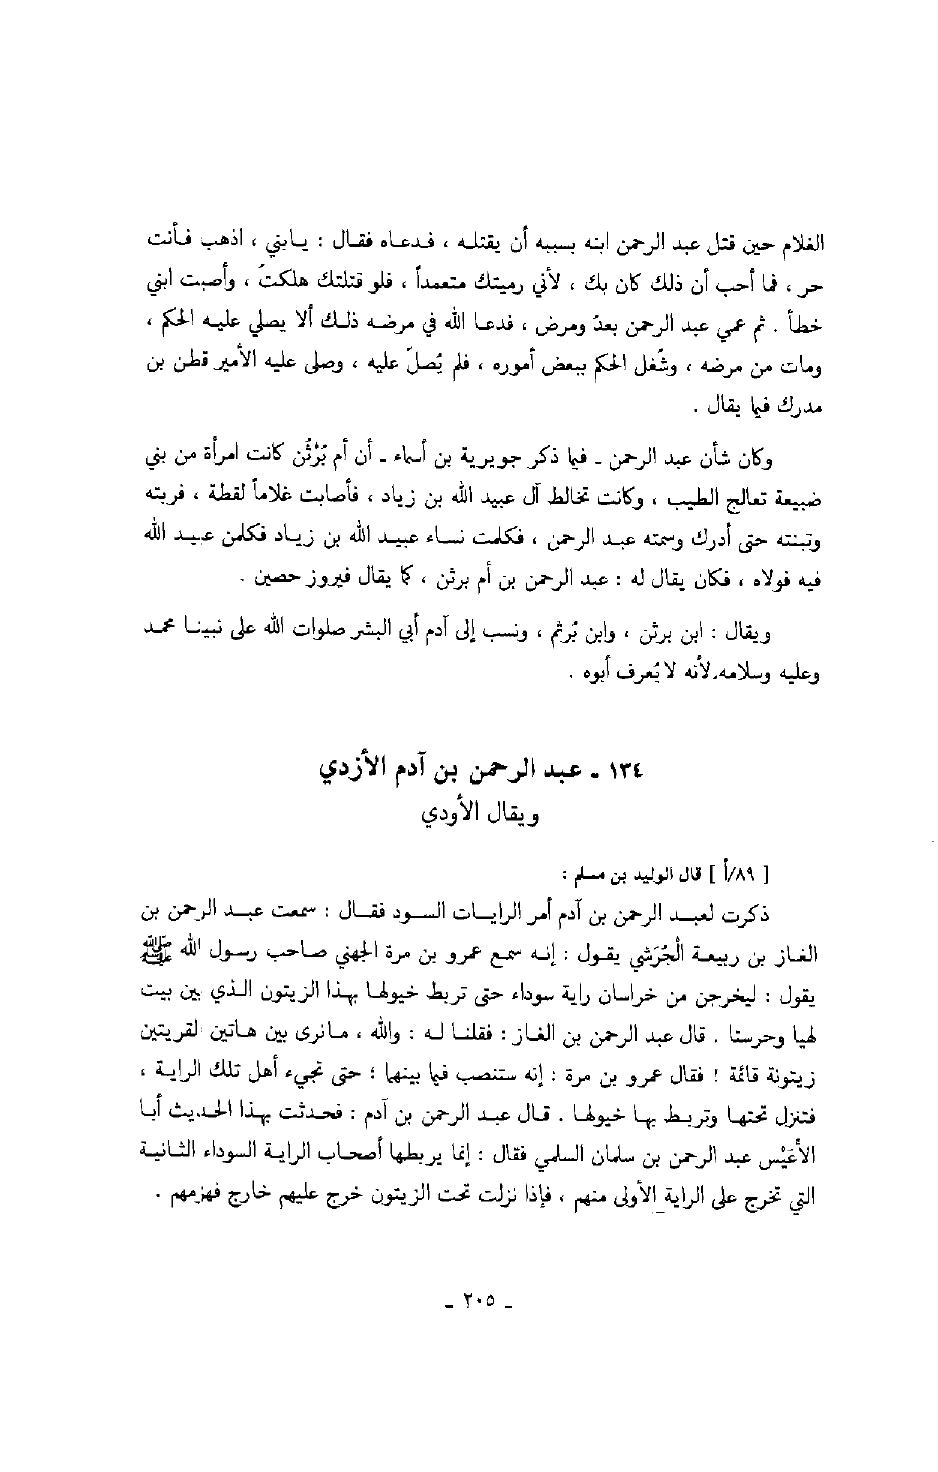 الغلام حين قتل عبد الرحمن ابنه بسببه أن يقتله ، فدعاه فقال : يابني ، اذهب فأنت
حر ، فما أحب أن ذلك كان بك ، لأني رميتك متعمداً ، فلو قتلتك هلكتُ ، وأصبت ابني
خطأ . ثم عمي عبد الرحمن بعدُ ومرض ، فدعا الله في مرضه ذلك ألا يصلي عليه الحكم ،
ومات من مرضه ، وشُغل الحكم ببعض أموره ، فلم يُصلّ عليه ، وصلى عليه الأمير قطن بن
مدرك فيما يقال .
وكان شأن عبد الرحمن ـ فيما ذكر جويرية بن أسماء ـ أن أم بُرْثُن كانت امرأة من بني
ضبيعة تعالج الطيب ، وكانت تخالط آل عبيد الله بن زياد ، فأصابت غلاماً لقطة ، فربته
وتبنته حتى أدرك وسمته عبد الرحمن ، فكلمت نساء عبيد الله بن زياد فكلمن عبيد الله
فيه فولاه ، فكان يقال له : عبد الرحمن بن أم برثن ، كما يقال فيروز حصين .
ويقال : ابن برثن ، وابن بُرثم ، ونسب إلى آدم أبي البشر صلوات الله على نبينا محمد
وعليه وسلامه، لأنه لا يُعرف أبوه .
١٣٤ ـ عبد الرحمن بن آدم الأزدي
ويقال الأودي
[ ٨٩/أ ] قال الوليد بن مسلم :
ذكرت لعبد الرحمن بن آدم أمر الرايات السود فقال : سمعت عبد الرحمن بن
الغاز بن ربيعة الجُرَشي يقول : إنه سمع عمرو بن مرة الجهني صاحب رسول الله ﷺ
يقول : ليخرجن من خراسان راية سوداء حتى تربط خيولها بهذا الزيتون الذي بين بيت
لهيا وحرستا . قال عبد الرحمن بن الغاز : فقلنا له : والله ، مانرى بين هاتين القريتين
زيتونة قائمة ! فقال عمرو بن مرة : إنه ستنصب فيما بينها ؛ حتى تجيء أهل تلك الراية ،
فتنزل تحتها وتربط بها خيولها . قال عبد الرحمن بن آدم : فحدثت بهذا الحديث أبا
الأعْيَس عبد الرحمن بن سلمان السلمي فقال : إنما يربطها أصحاب الراية السوداء الثانية
التي تخرج على الراية الأولى منهم ، فإذا نزلت تحت الزيتون خرج عليهم خارج فهزمهم .
ـ ٢٠٥ ـ